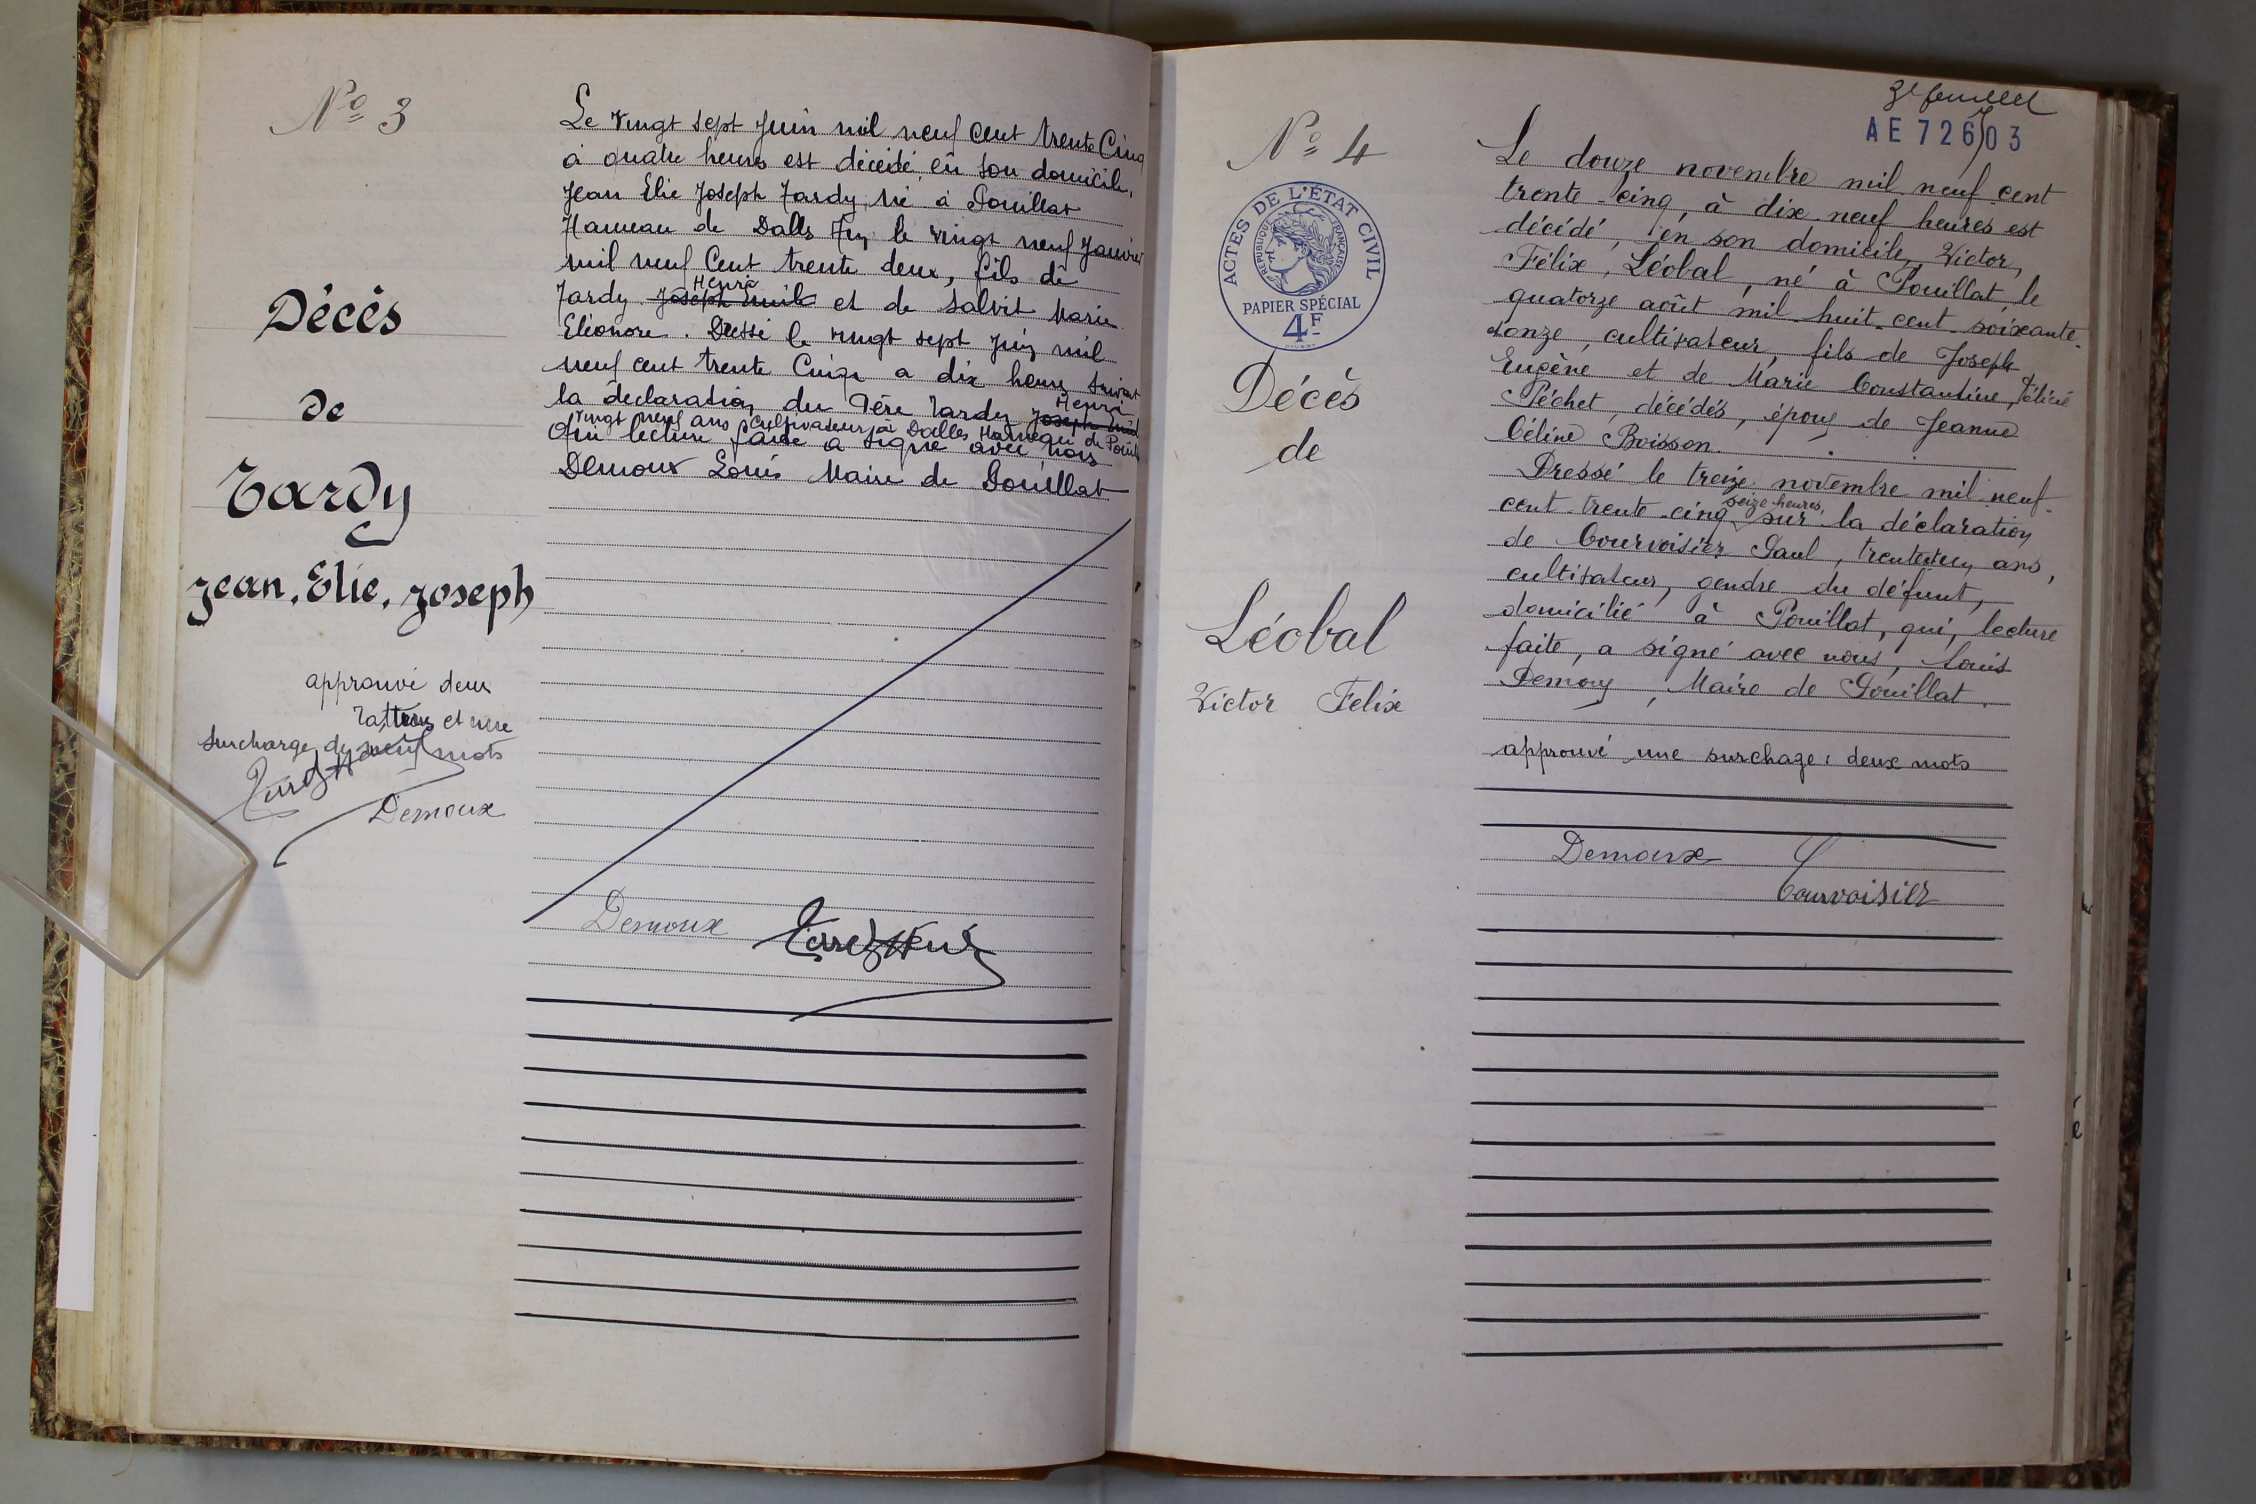 Nº 3
Décès
de
Tardy
Jean, Elie, Joseph
approuvé deux
ratures et une
surcharge de neuf mots
Tardy H
Demoux
Le vingt sept Juin mil neuf cent trente Cinq
à quatre heures est décédé en son domicile,
Jean Elie Joseph Tardy, né à Pouillat
Hameau de Dalles le vingt neuf Janvier
mil neuf Cent trente deux, fils de
Henri
Tardy Joseph Emile et de Salvit Marie
Eléonore. Dressé le vingt sept Juin mil
neuf cent trente Cinq a dix heures suivant
Henri
la déclaration du Père Tardy Joseph Emile
vingt neuf ans Cultivateur à Dalles Hameau de Pouillat
Qui lecture faite a signé avec nous
Demoux Louis Maire de Pouillat
Demoux Tardy Henri
3e feuillet
AE 726703
Nº 4
ACTES DE L'ÉTAT CIVIL
RÉPUBLIQUE FRANÇAISE
PAPIER SPÉCIAL
4F
Décès
de
Léobal
Victor Felix
Le douze novembre mil neuf cent
trente-cinq, à dix-neuf heures est
décédé, en son domicile, Victor,
Félix, Léobal, né à Pouillat, le
quatorze août mil huit-cent-soixante-
onze, cultivateur, fils de Joseph
Eugène et de Marie Constantine, Félicie
Péchet, décédés, époux de Jeanne
Céline Boisson.
Dressé le treize novembre mil neuf-
seize heures,
cent-trente-cinq sur la déclaration
de Courvoisier Paul, ans,
cultivateur, gendre du défunt,
domicilié à Pouillat, qui, lecture
faite, a signé avec nous, Louis
Demoux, Maire de Pouillat.
approuvé une surchage: deux mots
Demoux
Courvoisier